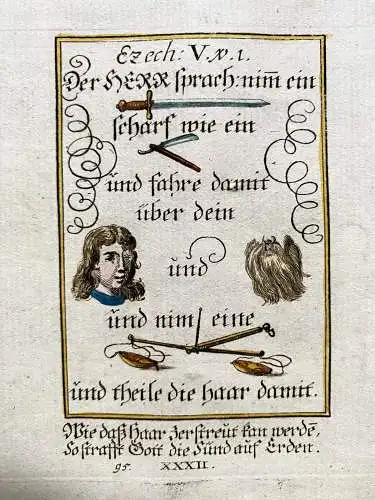 Ezech: V. v. 1.
Der HERR sprach: nim̅ ein
scharf wie ein
und fahre damit
über dein
und
und nim eine
und theile die haar damit.
Wie daß Haar zerstreut kan werdē,
So strafft Gott die Sünd auf Erden.
95. XXXII.